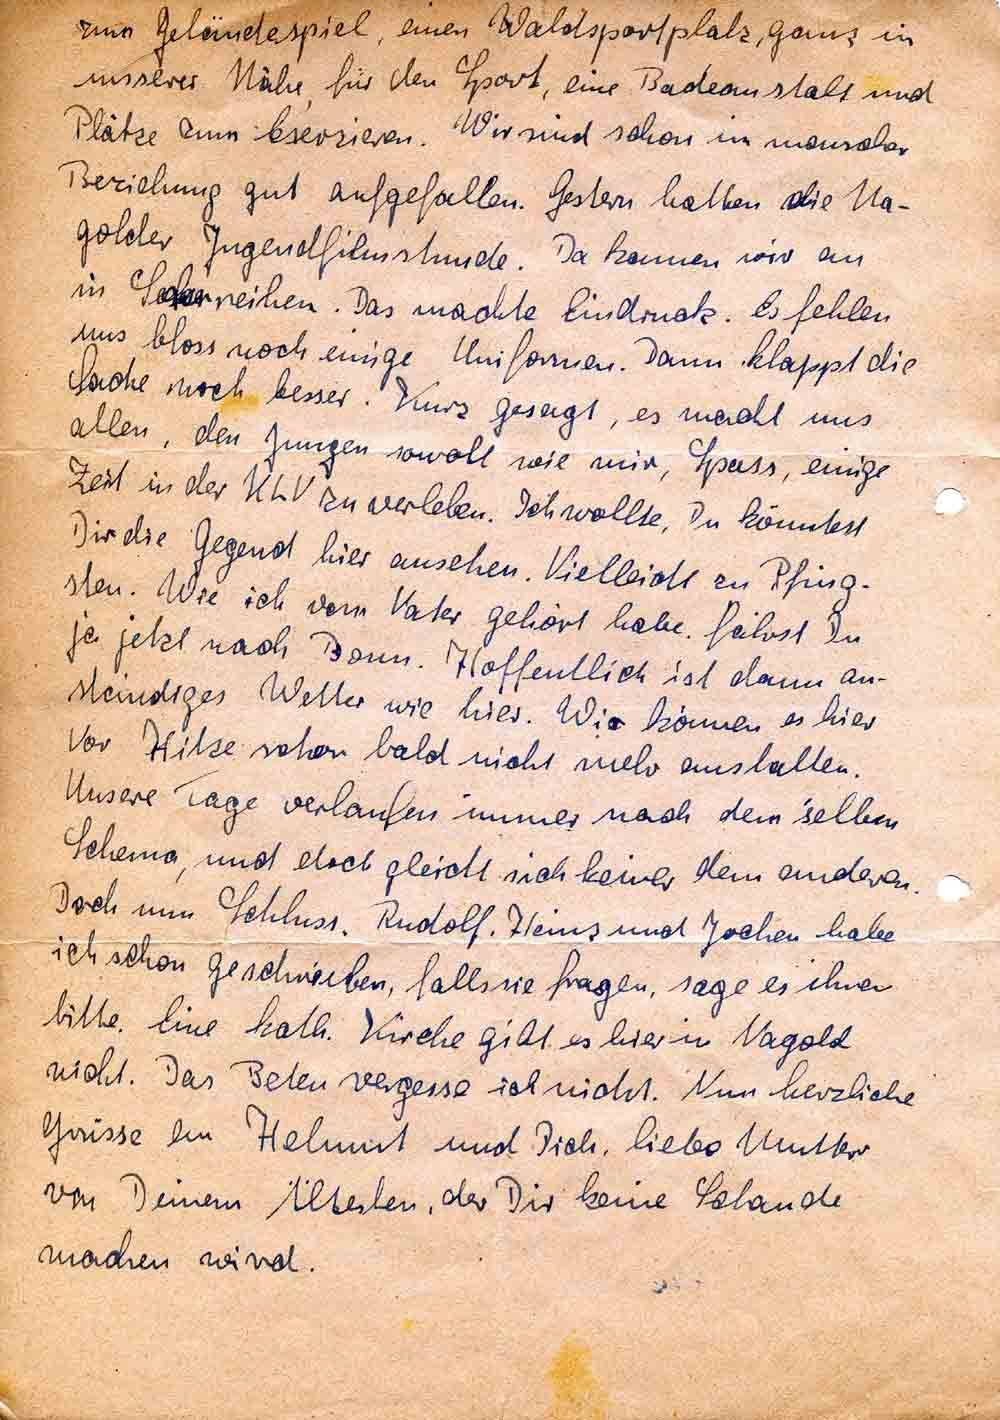 zum Geländespiel, einen Waldsportplatz, ganz in
unserer Nähe, für den Sport, eine Badeanstalt und
Plätze zum Exerzieren. Wir sind schon in mancher
Beziehung gut aufgefallen. Gestern hatten die Na-
golder Jugendfilmstunde. Da kamen wir an
in
uns bloss noch einige Uniformen. Dann klappt die
Sache noch besser. Kurz gesagt, es macht uns
allen, den Jungen sowohl wie mir, Spass, einige
Zeit in der KLV zu verleben. Ich wollte, Du könntest
Dir die Gegend hier ansehen. Vielleicht zu Pfing-
sten. Wie ich vom Vater gehört habe. fährst Du
ja jetzt nach Bonn. Hoffentlich ist dann an-
ständiges Wetter wie hier. Wir können es hier
vor Hitze schon bald nicht mehr aushalten.
Unsere Tage verlaufen immer nach dem selben
Schema, und doch gleicht sich keiner dem anderen.
Doch nun Schluss. Rudolf. Heinz und Jochen habe
ich schon geschrieben, falls sie fragen, sage es ihnen
bitte. Eine kath. Kirche gibt es hier in Nagold
nicht. Das Beten vergesse ich nicht. Nun herzliche
Grüsse an Helmut und Dich, liebe Mutter
von Deinem Ältesten, der Dir keine Schande
machen wird.